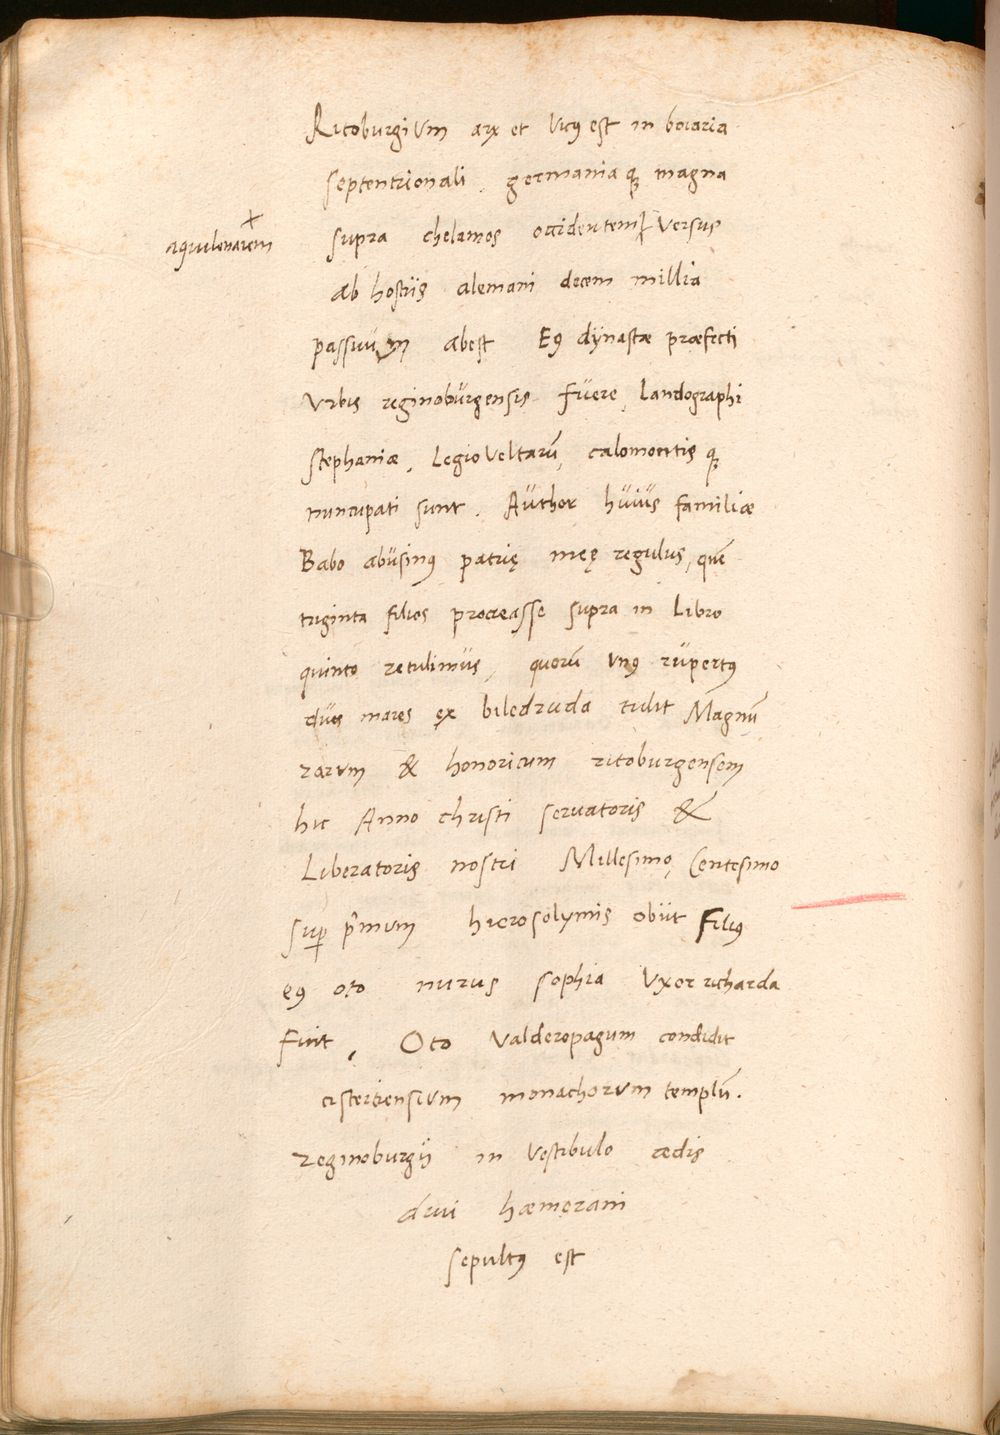 Ritoburgium arx et vicꝰ est in boiaria
septentrionali, germaniaqꝫ magna
+
aquilonarem̄
supra chelamos occidentem⸠ versus
ab hostiis alemani decem millia
passuum abest Eꝰ dynastæ præfecti
vrbis reginobŭrgensis fŭere, Landographi
stephaniæ, Legio veltarū, calomontisqꝫ
nuncupati sunt. Aŭthor hŭiŭs familiæ
Babo abŭsinꝰ patrię meę regulus, quē
triginta filios procreasse supra in Libro
quinto retulimŭs, quorū vnꝰ rŭpertꝰ
dŭos mares ex biledruda tulit Magnū
rarum & honoricum ritoburgensem
hic Anno christi servatoris &
Liberatoris nostri Millesimo, Centesimo
suꝑ p̄imum hierosolymis obiit Filiꝰ
eꝰ oto nurus sophia vxor richarda
fuit, Oto valderopagum condidit
cistertiensium monachorum templū.
reginoburgij in vestibulo ædis
divi hæmerani
sepultꝰ est